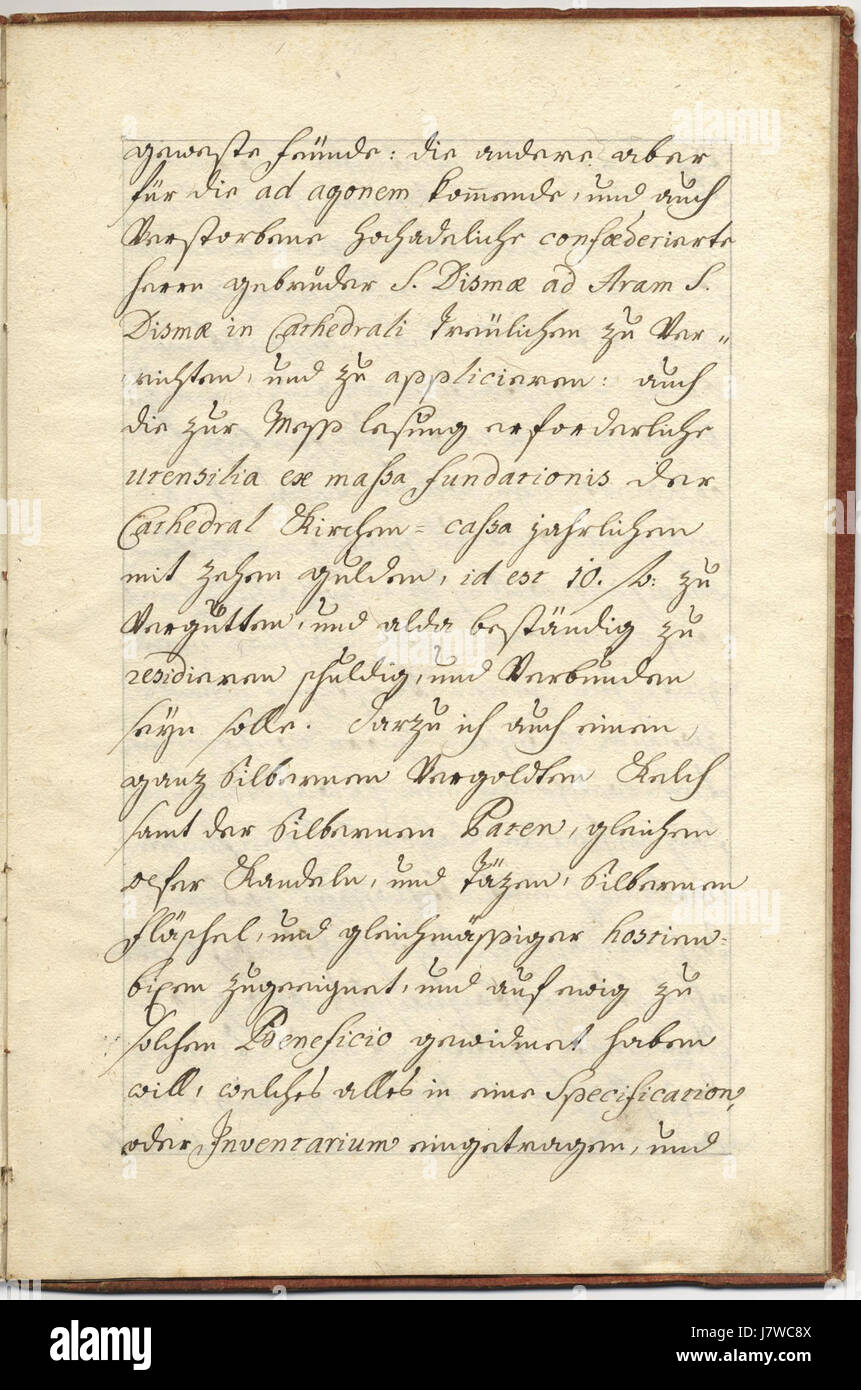 geweste freünde: die andere aber
für die ad agonem kom̄ende, und auch
Verstorbene Hochadeliche confœderierte
herrn gebrüder S. Dismæ ad Aram S.
Dismæ in Cathedrali treülichen zu Ver-
richten, und zu applicieren: auch
die zur Mess lesung erforderliche
utensilia ex massa fundationis der
Cathedral Kirchen= cassa jahrlichen
mit zehen gulden, id est 10. fl: zu
Vergütten, und alda beständig zu
residieren schuldig, und Verbunden
seyn solle. Darzu ich auch einen
ganz Silbernen Vergoldten Kelch
samt der Silbernen Paten, gleichen
opfer Kandeln, und Täzen, Silbernen
Fläschel, und gleichmässiger hostien=
bixen zugeeignet, und auf ewig zu
solchen Beneficio gewidmet haben
will, welches alles in eine Specification,
oder Inventarium eingetragen, und
alamy
Image ID: J7WC8X
www.alamy.com